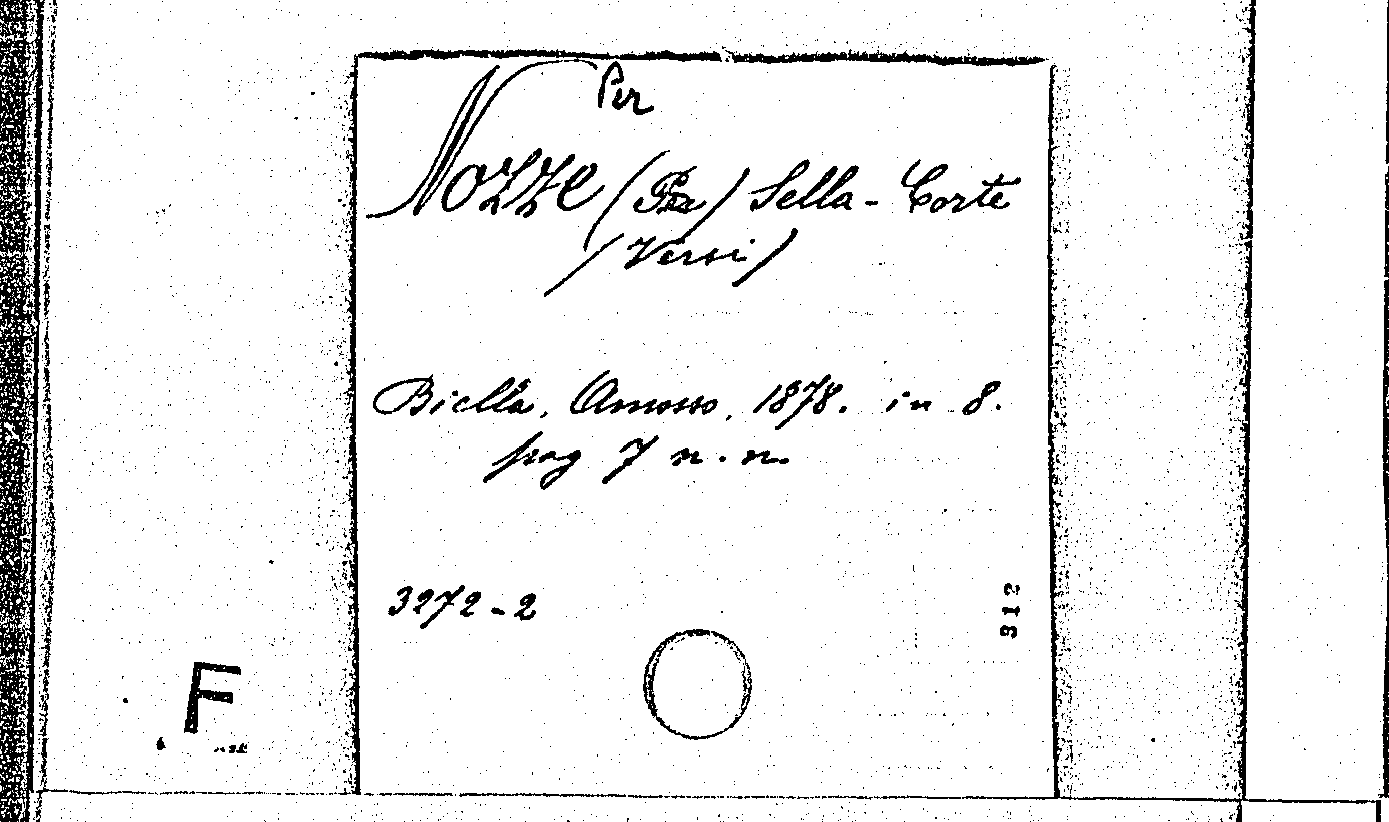 Per
Nozze (Per) Sella - Corte
(Versi)
Biella, Amosso, 1878. in 8.
pag 7 n. n.
3272-2
312
F